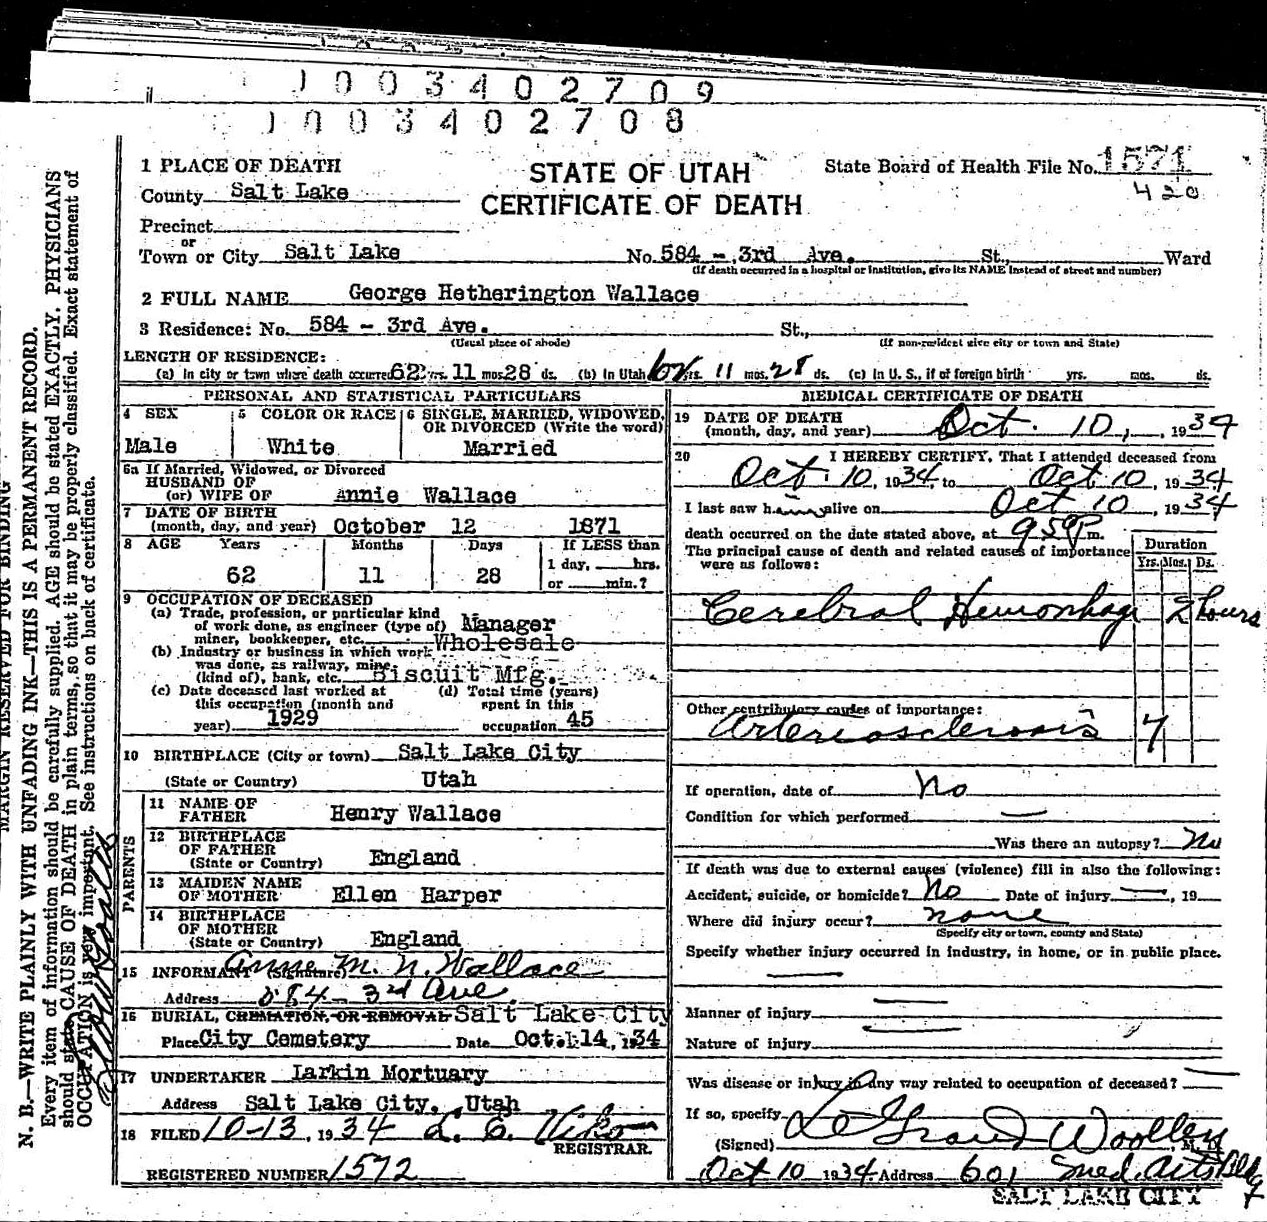 1003402709
1003402708
1 PLACE OF DEATH
STATE OF UTAH
CERTIFICATE OF DEATH
State Board of Health File No. 1571
420
County Salt Lake
Precinct
or
Town or City Salt Lake No. 584 - 3rd Ave. St., Ward
(If death occurred in a hospital or institution, give its NAME instead of street and number)
2 FULL NAME George Hetherington Wallace
3 Residence: No. 584 - 3rd Ave. St.,
(Usual place of abode) (If non-resident give city or town and State)
LENGTH OF RESIDENCE:
(a) In city or town where death occurred 62 yrs. 11 mos. 28 ds. (b) In Utah 62 yrs. 11 mos. 28 ds. (c) In U. S., if of foreign birth yrs. mos. ds.
PERSONAL AND STATISTICAL PARTICULARS
4 SEX
Male
5 COLOR OR RACE
White
6 SINGLE, MARRIED, WIDOWED,
OR DIVORCED (Write the word)
Married
6a If Married, Widowed, or Divorced
HUSBAND OF
(or) WIFE OF Annie Wallace
7 DATE OF BIRTH
(month, day, and year) October 12 1871
8 AGE Years Months Days If LESS than
1 day, hrs.
62 11 28 or min.?
9 OCCUPATION OF DECEASED
(a) Trade, profession, or particular kind
of work done, as engineer (type of) Manager
miner, bookkeeper, etc. Wholesale
(b) Industry or business in which work
was done, as railway, mine,
(kind of), bank, etc. Biscuit Mfg.
(c) Date deceased last worked at
this occupation (month and
year) 1929
(d) Total time (years)
spent in this
occupation 45
10 BIRTHPLACE (City or town) Salt Lake City
(State or Country) Utah
PARENTS
11 NAME OF
FATHER Henry Wallace
12 BIRTHPLACE
OF FATHER
(State or Country) England
13 MAIDEN NAME
OF MOTHER Ellen Harper
14 BIRTHPLACE
OF MOTHER
(State or Country) England
15 INFORMANT (Signature) Annie M. N. Wallace
Address 584 - 3rd Ave.
16 BURIAL, CREMATION, OR REMOVAL Salt Lake City
Place City Cemetery Date Oct. 14, 1934
17 UNDERTAKER Larkin Mortuary
Address Salt Lake City, Utah
18 FILED 10-13, 1934
REGISTRAR.
REGISTERED NUMBER 1572
MEDICAL CERTIFICATE OF DEATH
19 DATE OF DEATH
(month, day, and year) Oct. 10, , 1934
20 I HEREBY CERTIFY, That I attended deceased from
Oct. 10, 1934, to Oct 10, 1934
I last saw him alive on Oct 10, 1934
death occurred on the date stated above, at 959P m.
The principal cause of death and related causes of importance
were as follows:
Duration
Yrs. Mos. Ds.
Cerebral Hemorrhage 2 hours
Other contributary causes of importance:
Arteriosclerosis 4
If operation, date of No
Condition for which performed —
Was there an autopsy? No
If death was due to external causes (violence) fill in also the following:
Accident, suicide, or homicide? No Date of injury — , 19
Where did injury occur? none
(Specify city or town, county and State)
Specify whether injury occurred in industry, in home, or in public place.
Manner of injury
Nature of injury
Was disease or injury in any way related to occupation of deceased? —
If so, specify
(Signed) LeGrand Woolley, M. D.
Oct 10 1934 Address 601 Med. Arts Bldg
SALT LAKE CITY
MARGIN RESERVED FOR BINDING
N. B.—WRITE PLAINLY WITH UNFADING INK—THIS IS A PERMANENT RECORD.
Every item of information should be carefully supplied. AGE should be stated EXACTLY. PHYSICIANS
should state CAUSE OF DEATH in plain terms, so that it may be properly classified. Exact statement of
OCCUPATION is very important. See instructions on back of certificate.